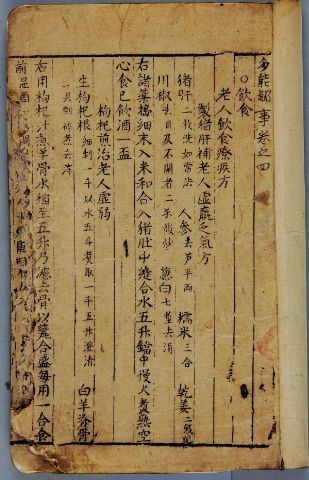 多能鄙事卷之四
○飲食
老人飲食療疾方
製猪肝補老人虛羸乏氣方
猪肝 一具洗如常法 人參 去芦半两 糯米 三合 乾姜 二錢
川椒 去目及不開者二錢微炒 葱白 七莖去須
右諸藥搗細末入米和合入猪肚中縫合水五升鐺中慢火煑熟空
心食已飲酒一盃
枸杞煎治老人虛弱
生枸杞根 細剉一斗以水五斗煑取一斗五升澄清 白羊脊骨
一具剉碎
右用枸杞汁煑羊骨水 至五升乃濾去骨以 合盛每用一合
前温酒